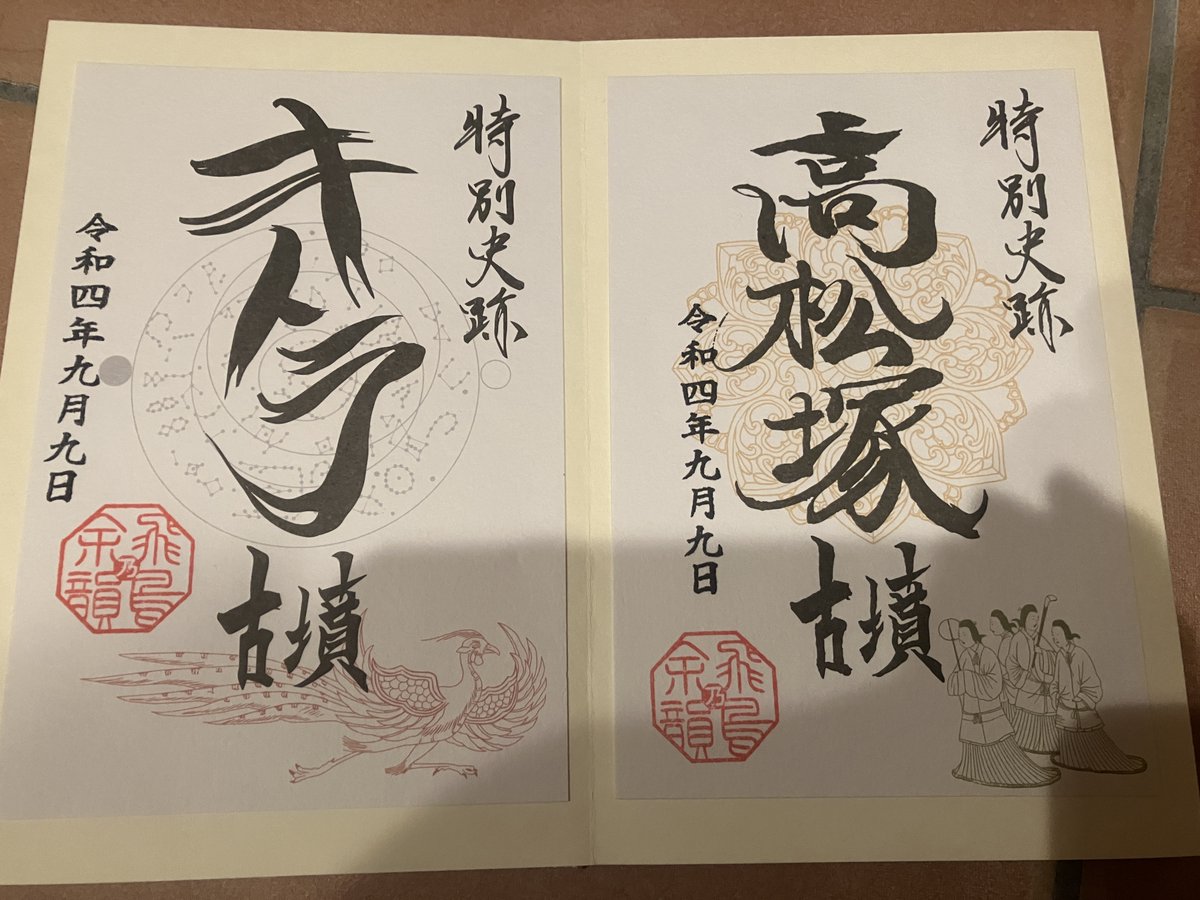 特別史跡
高松塚古墳
令和四年九月九日
飛鳥乃余韻
特別史跡
キトラ古墳
令和四年九月九日
飛鳥乃余韻